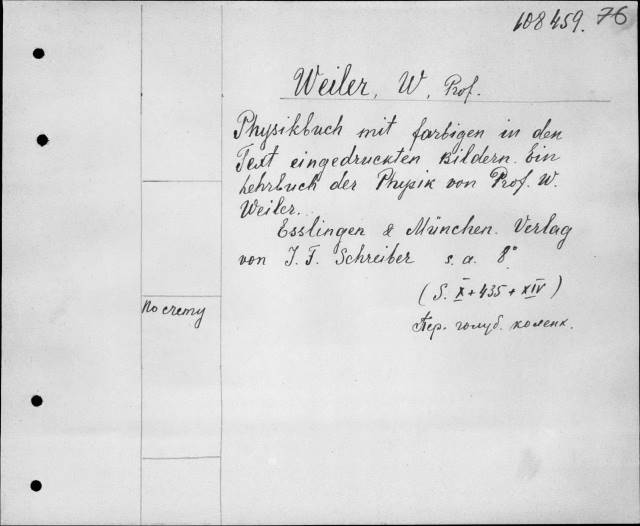 108459. 76
Weiler, W, Prof.
Physikbuch mit farbigen in den
Text eingedruckten Bildern. Ein
Lehrbuch der Physik von Prof. W.
Weiler.
Esslingen & München. Verlag
von J. F. Schreiber s. a. 8°
(S. X + 435 + XIV)
По счету
Пер. голуб. коленк.